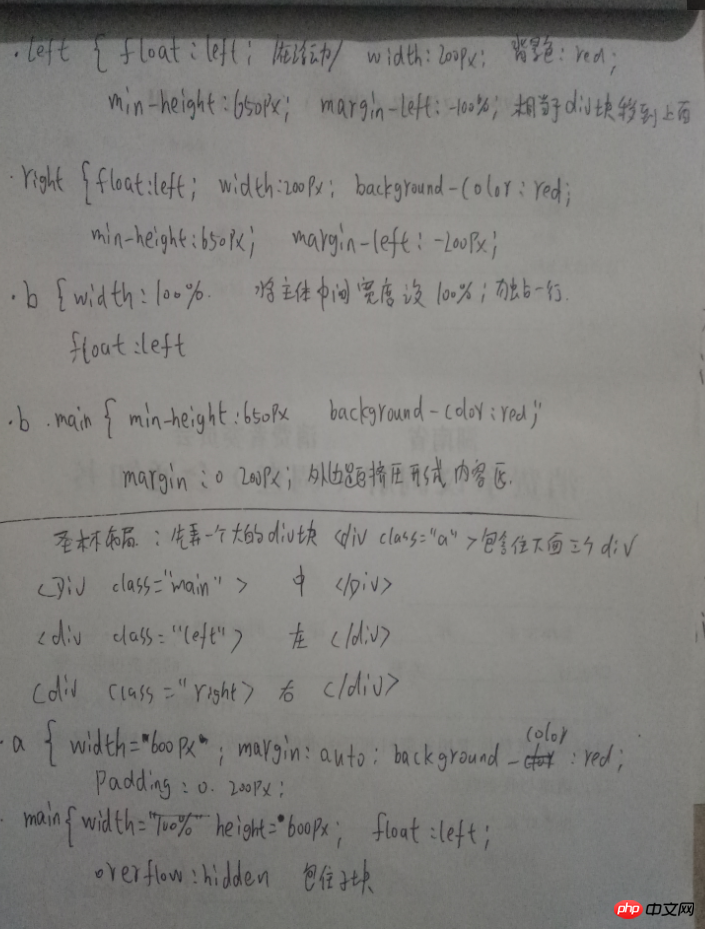 .left { float:left; 左浮动/ width:200px; 背景色: red;
min-height:650px; margin-left:-100%; 相当于div块移到上面
.right {float:left; width:200px; background-color: red;
min-height:650px; margin-left:-200px;
.b {width:100%. 将主体中间宽度设100%; 独占一行.
float:left
.b .main { min-height:650px background-color:red;"
margin:0 200px; 外边距挤压形成内容区.
圣杯布局: 先弄一个大的div块 <div class="a">包含住下面三个div
<Div class="main" > 中 </Div>
<div class="left"> 左 </div>
<div class="right> 右 </div>
.a { width="600px"; margin: auto; background-color: red;
Padding: 0. 200px;
.main{width="100%" height="600px; float:left;
overflow:hidden 包住子块
php 中文网